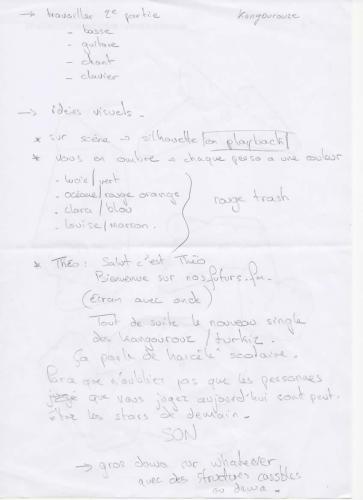 → travailler 2e partie Kangourouze
- basse
- guitare
- chant
- clavier
→ idées visuels.
* sur scène → silhouette / en playback /
* vous en ombre → chaque perso a une couleur
- lucie / vert
- océane / rouge orange
- clara / bleu
- louise / marron.
rouge trash
* Théo : Salut c'est Théo
Bienvenue sur nosfuturs.fm.
(Ecran avec onde)
Tout de suite le nouveau single
des Kangourouz / turkiz.
Ça parle de harcèle scolaire.
Parce que n'oublier pas que les personnes
que vous jugez aujourd'hui sont peut.
être les stars de demain.
SON
→ gros dawa sur whatever
avec des structures cassables
ou dawa.